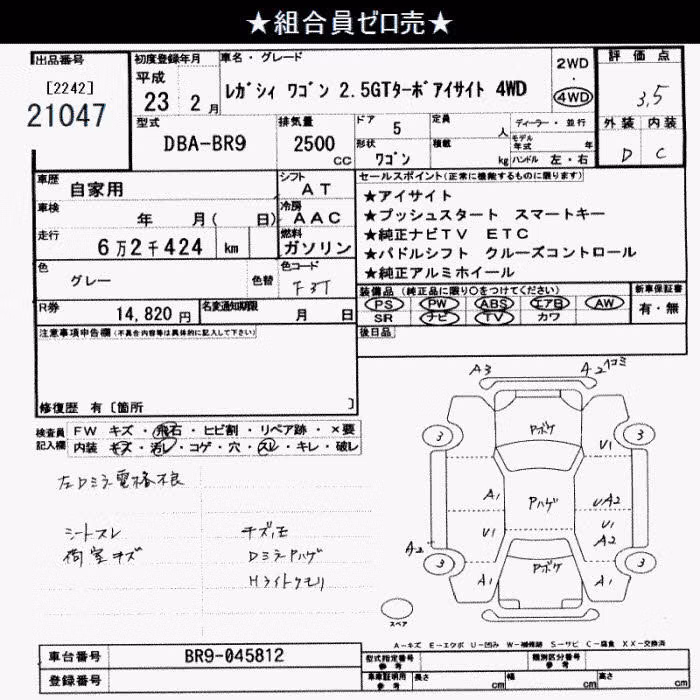 ★組合員ゼロ売★
出品番号
[2242]
21047
初度登録年月
平成
23 2月
車名・グレード
ﾚｶﾞｼｨ ﾜｺﾞﾝ 2.5GTﾀｰﾎﾞｱｲｻｲﾄ 4WD
2WD
・
4WD
評価点
3.5
外装 内装
D C
型式
DBA-BR9
排気量
2500
cc
ドア
5
定員
人
ディーラー・並行
モデル
年式 年
形状
ﾜｺﾞﾝ
積載
kg
ハンドル 左・右
車歴
自家用
シフト
AT
車検
年 月( 日)
冷房
AAC
走行
6万2千424 km
燃料
ガソリン
色
グレー
色替
色コード
F3T
R券
14,820円
名変通知期限
月 日
セールスポイント(正常に機能するものに限ります)
★アイサイト
★プッシュスタート スマートキー
★純正ナビTV ETC
★パドルシフト クルーズコントロール
★純正アルミホイール
装備品(純正品に限り○をつけてください)
PS PW ABS エアB AW
SR ナビ TV カワ
新車保証書
有・無
後日品
注意事項申告欄(不具合内容等は具体的に記入して下さい)
修復歴 有〔箇所 〕
検査員
記入欄
FW キズ・飛石・ヒビ割・リペア跡・×要
内装 キズ・汚レ・コゲ・穴・スレ・キレ・破レ
左Dミラー電格不良
シートスレ
荷室キズ
キズ凹
Dミラーハゲ
Hライトクモリ
A3
A2
Pボケ
3
3
U1
A1
Pハゲ
UA2
U1
U1
A2
A2
Pボケ
3
3
A1
A1
スペア
A-キズ E-エクボ U-凹み W-補修跡 S-サビ C-腐食 XX-交換済
車台番号
BR9-045812
登録番号
型式指定番号
参考
類別区分番号
参考
車庫証明用
参考
長さ cm
幅 cm
高さ cm